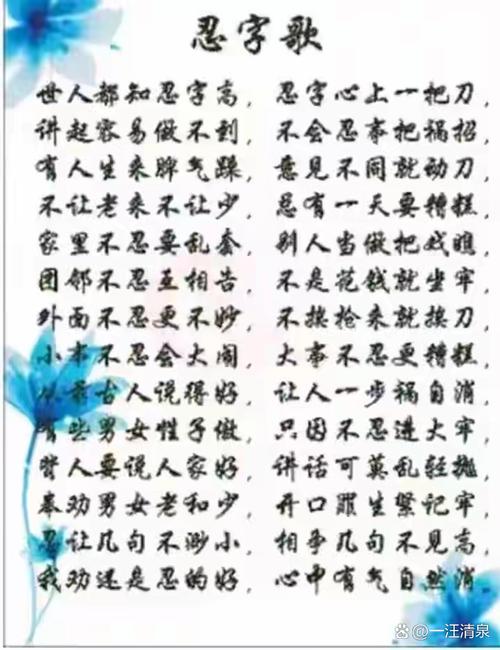 忍字歌
世人都知忍字高，忍字心上一把刀，
讲起容易做不到，不会忍事把祸招，
有人生来脾气躁，意见不同就动刀，
不让老来不让少，总有一天要糟糕，
家里不忍要乱套，别人当做把戏瞧，
团邻不忍互相告，不是花钱就坐牢，
外面不忍更不妙，不挨抢来就挨刀，
小事不忍会大闹，大事不忍更糟糕，
从前古人说得好，让人一步祸自消，
有些男女性子傲，只因不忍进大牢，
誉人要说人家好，讲话可莫乱轻抛，
奉劝男女老和少，开口罪生紧记牢，
忍让几句不渺小，相争几句不见高，
我劝还是忍的好，心中有气自然消，
@一汪清泉